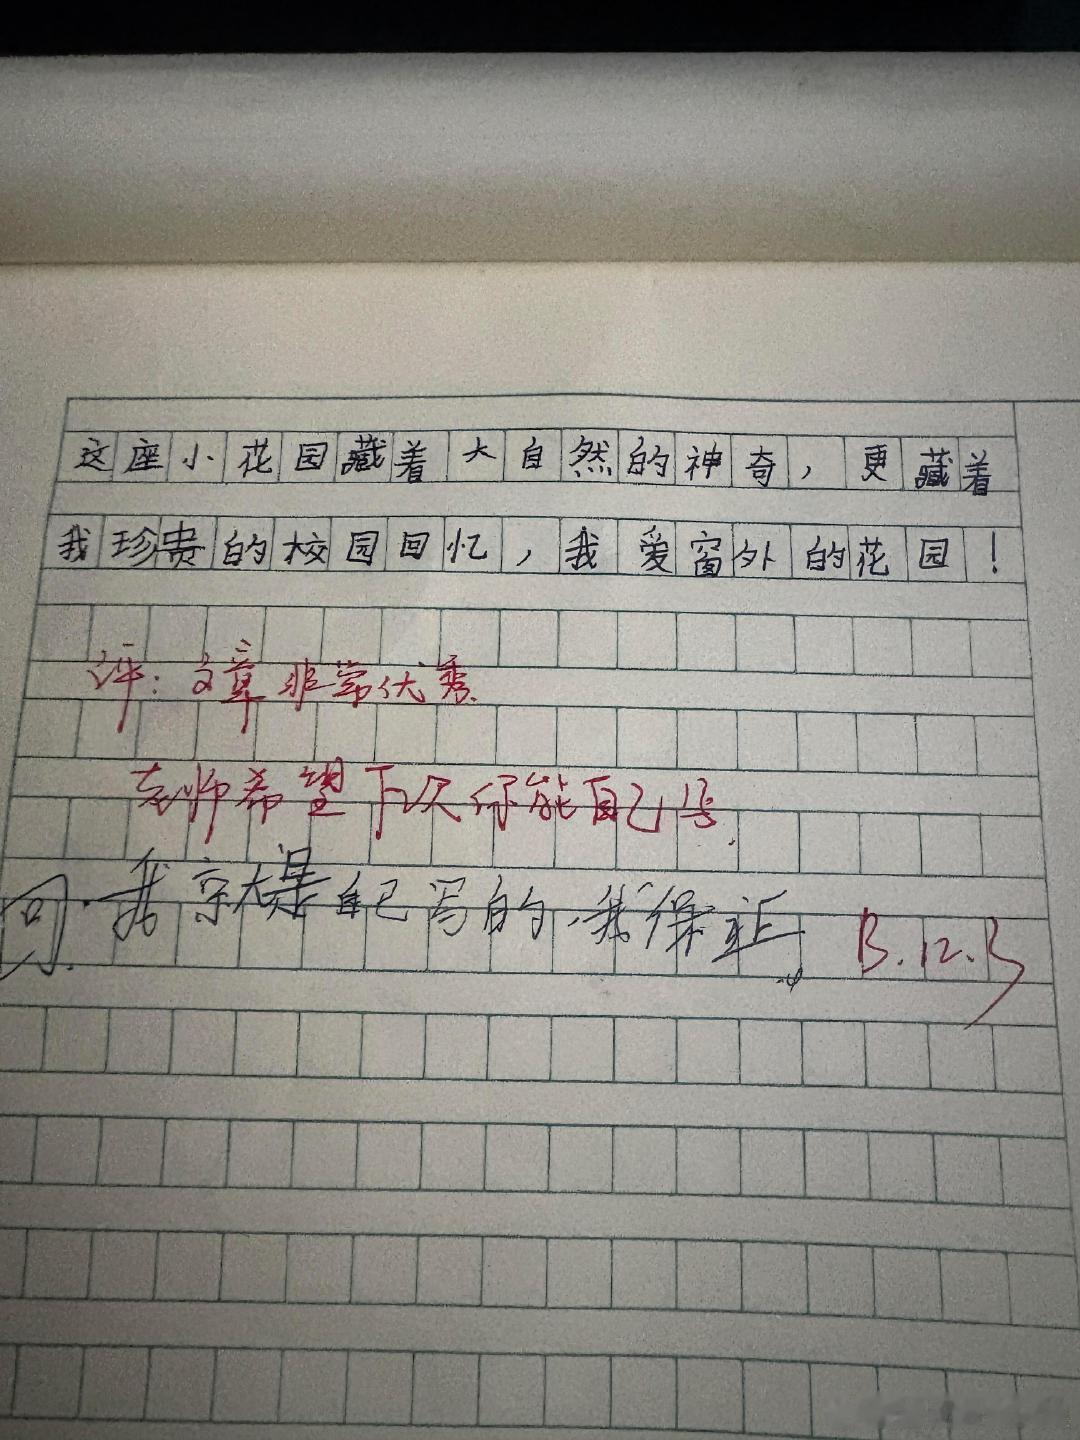 这座小花园藏着大自然的神奇，更藏着
我珍贵的校园回忆，我爱窗外的花园！
评：文章非常优秀.
老师希望下次你能自己写.
回.我京大是自己写的,我保证
B.12.3